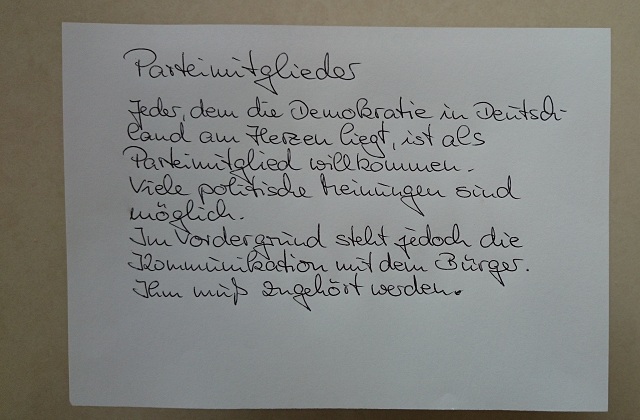 Parteimitglieder
Jeder, dem die Demokratie in Deutsch-
land am Herzen liegt, ist als
Parteimitglied willkommen.
Viele politische Meinungen sind
möglich.
Im Vordergrund steht jedoch die
Kommunikation mit dem Bürger.
Ihm muß zugehört werden.